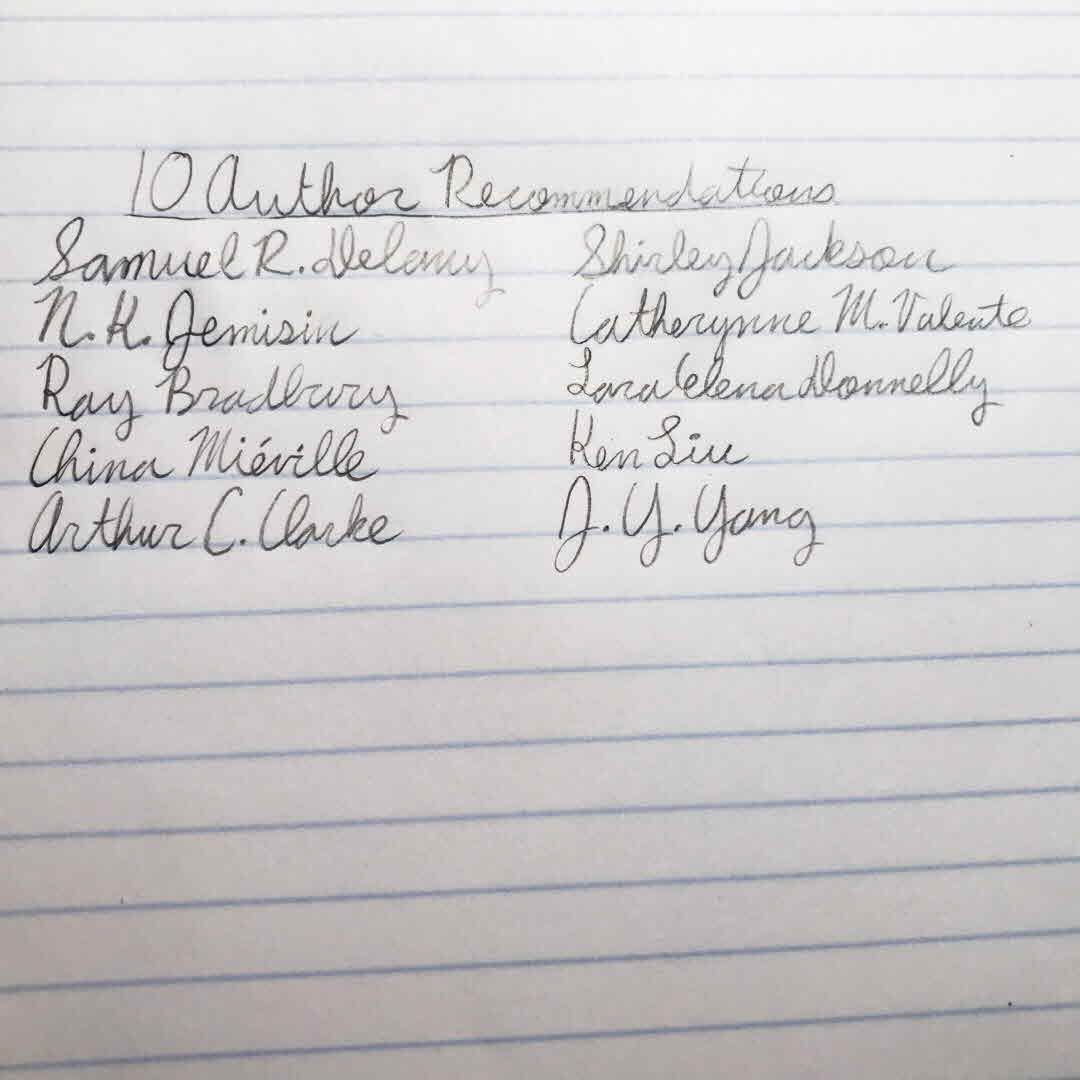 10 Author Recommendations
Samuel R. Delany
N. K. Jemisin
Ray Bradbury
China Miéville
Arthur C. Clarke
Shirley Jackson
Catherynne M. Valente
Lara Elena Donnelly
Ken Liu
J. Y. Yang